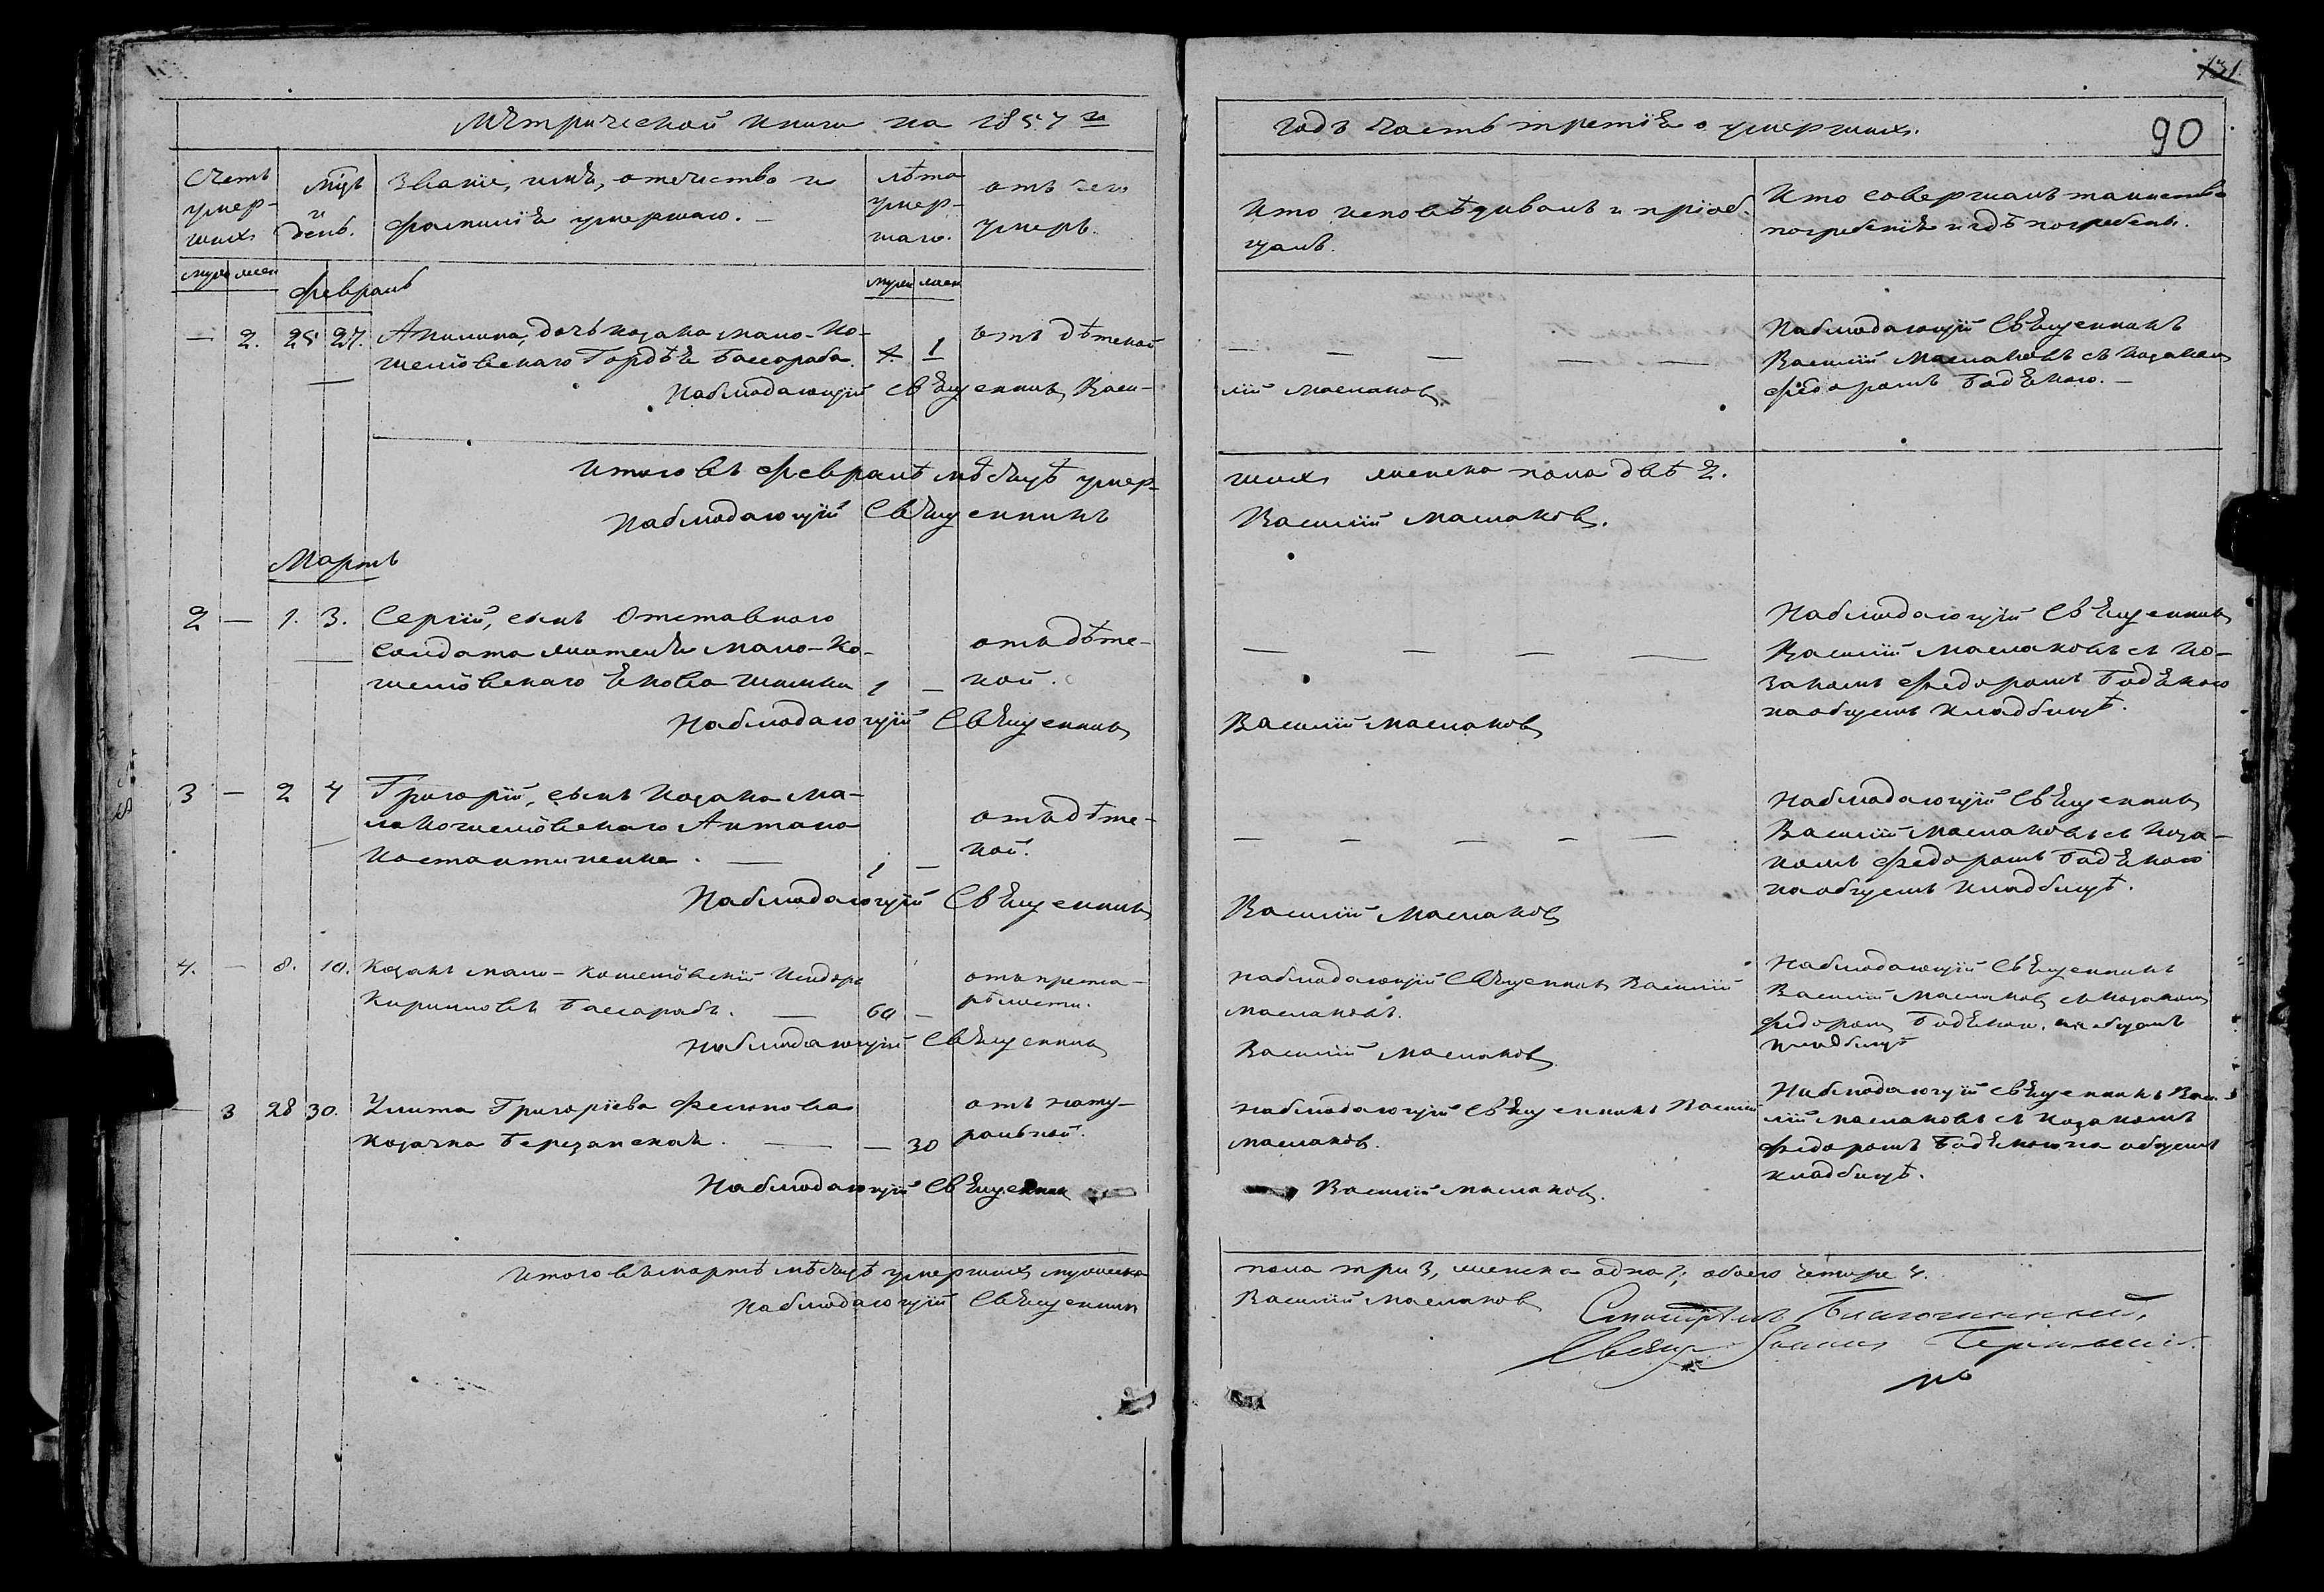 131
Метрической книги на 1857 го
годъ часть третія о умершихъ.
90
Счетъ
умер-
шихъ
мцъ
и
день.
Званіе, имя, отечество и
фамилія умершаго. —
лѣта
умер-
шаго.
отъ чего
умеръ.
Кто исповѣдывалъ и пріоб-
щалъ.
Кто совершалъ таинство
погребенія и гдѣ погребены.
муж жен
Февраль
муж жен
— 2. 25 27. Акилина, дочь козака Мало-Ко-
шелiовскаго Гордѣя Бассараба. 1 отъ дѣтской
Наблюдающій священникъ Васи-
лій Маслаковъ
Наблюдающій Священникъ
Василій Маслаковъ съ козакомъ
Федоромъ Бодякою. —
Итого въ февралѣ мѣсяцѣ умер-
шихъ женска пола двѣ 2.
Наблюдающій Священникъ
Василій Маслаковъ.
Мартъ
2 — 1. 3. Сергій, сынъ отставного
солдата жителя Мало-Ко-
шелiовскаго Якова 1 —
отъ дѣтс-
кой.
Наблюдающій Священникъ
Василій Маслаковъ
Наблюдающій Священникъ
Василій Маслаковъ съ ко-
закомъ Федоромъ Бодякою
на общемъ кладбищѣ.
3 — 2 4 Григорій, сынъ козака Ма-
локошелiовскаго Антона
Костантиненка. — 1 —
отъ дѣтс-
кой.
Наблюдающій Священникъ
Василій Маслаковъ
Наблюдающій Священникъ
Василій Маслаковъ съ коза-
комъ Федоромъ Бодякою
на общемъ кладбищѣ.
4. — 8. 10. Козакъ Мало-Кошелiовскій Исидоръ
Кириловъ Бассарабъ. — 60 —
отъ преста-
рѣлости.
Наблюдающій Священникъ
Наблюдающій Священникъ Василій
Маслаковъ.
Василій Маслаковъ
Наблюдающій Священникъ
Василій Маслаковъ съ козакомъ
Федоромъ Бодякою. на общемъ
кладбищѣ
— 3 28 30. Улита Григоріева
козачка Березанская. — — 30
отъ нату-
ральной.
Наблюдающій Священникъ
Наблюдающій Священникъ Василій
Маслаковъ.
Василій Маслаковъ.
Наблюдающій священникъ Васи-
лій Маслаковъ съ козакомъ
Федоромъ Бодякою на общемъ
кладбищѣ.
Итого въ мартѣ мѣсяцѣ умершихъ мужеска
пола три 3, женска одна 1; обоего четыре 4.
Наблюдающій Священникъ
Василій Маслаковъ
Смотрѣлъ Благочинный,